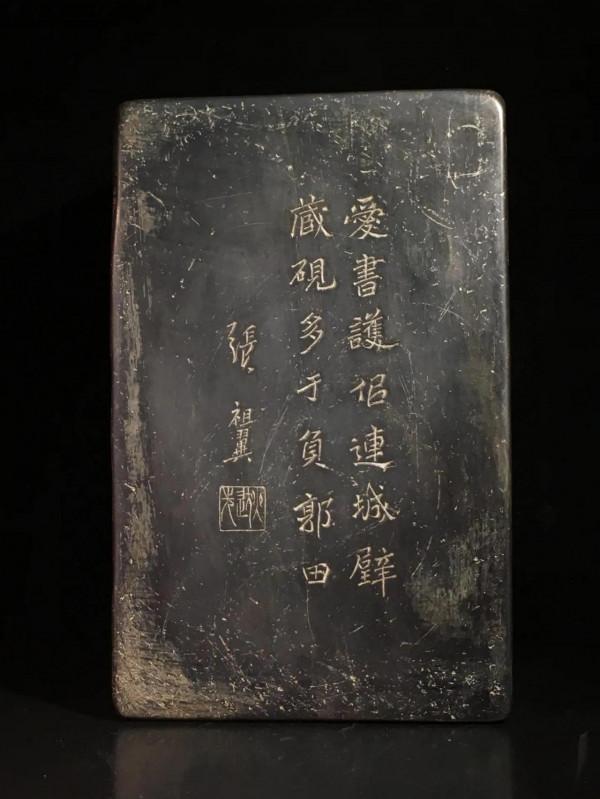 愛書護侣連城璧
藏硯多于負郭田
張祖翼